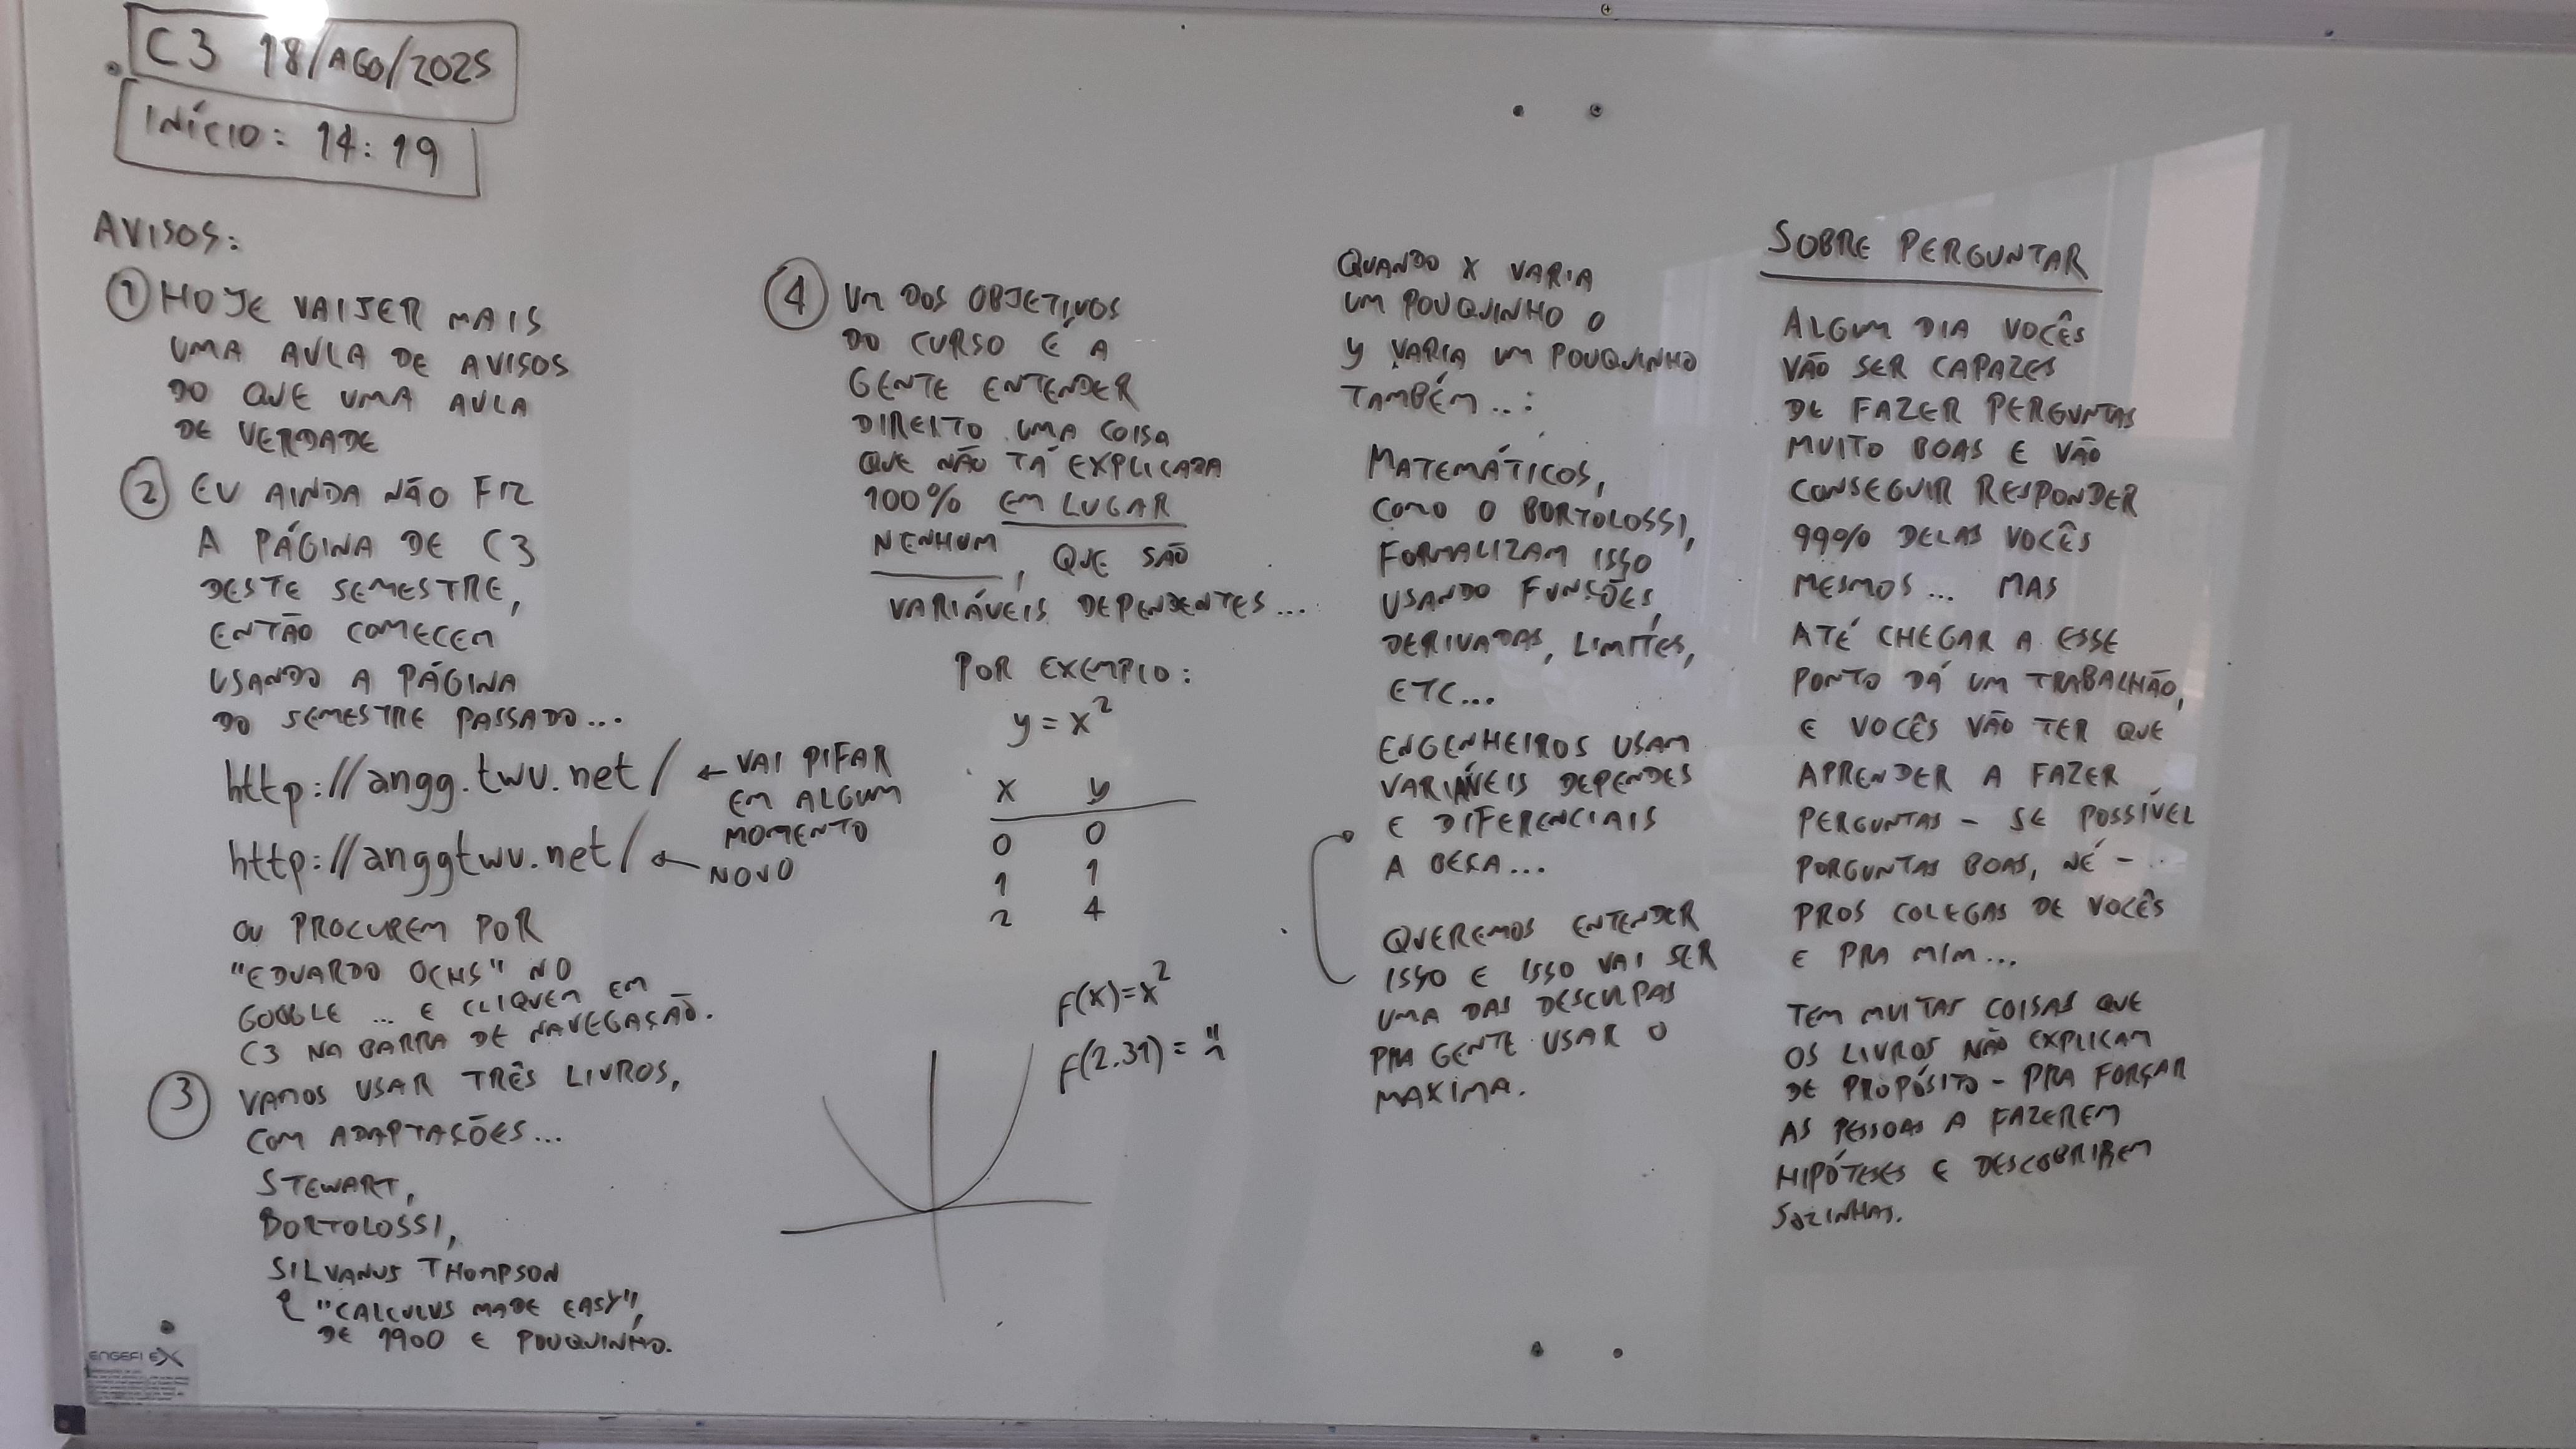 C3 18/AGO/2025
INÍCIO: 14:19
AVISOS:
① HOJE VAI SER MAIS
UMA AULA DE AVISOS
DO QUE UMA AULA
DE VERDADE
② EU AINDA NÃO FIZ
A PÁGINA DE C3
DESTE SEMESTRE,
ENTÃO COMECEM
USANDO A PÁGINA
DO SEMESTRE PASSADO...
http://angg.twu.net/ ← VAI PIFAR
EM ALGUM
MOMENTO
http://anggtwu.net/ ← NOVO
OU PROCUREM POR
"EDUARDO OCHS" NO
GOOGLE ... E CLIQUEM EM
C3 NA BARRA DE NAVEGAÇÃO.
③ VAMOS USAR TRÊS LIVROS,
COM ADAPTAÇÕES...
STEWART,
BORTOLOSSI,
SILVANUS THOMPSON
"CALCULUS MADE EASY",
DE 1900 E POUQUINHO.
④ UM DOS OBJETIVOS
DO CURSO É A
GENTE ENTENDER
DIREITO UMA COISA
QUE NÃO TÁ EXPLICADA
100% EM LUGAR
NENHUM, QUE SÃO
VARIÁVEIS DEPENDENTES...
POR EXEMPLO:
y = x²
x y
0 0
1 1
2 4
f(x)=x²
f(2.31) =
QUANDO X VARIA
UM POUQUINHO O
y VARIA UM POUQUINHO
TAMBÉM...:
MATEMÁTICOS,
COMO O BORTOLOSSI,
FORMALIZAM ISSO
USANDO FUNÇÕES,
DERIVADAS, LIMITES,
ETC...
ENGENHEIROS USAM
VARIÁVEIS DEPENDES
E DIFERENCIAIS
A BEÇA...
QUEREMOS ENTENDER
ISSO E ISSO VAI SER
UMA DAS DESCULPAS
PRA GENTE USAR O
MAXIMA.
SOBRE PERGUNTAR
ALGUM DIA VOCÊS
VÃO SER CAPAZES
DE FAZER PERGUNTAS
MUITO BOAS E VÃO
CONSEGUIR RESPONDER
99% DELAS VOCÊS
MESMOS... MAS
ATÉ CHEGAR A ESSE
PONTO DÁ UM TRABALHÃO,
E VOCÊS VÃO TER QUE
APRENDER A FAZER
PERGUNTAS - SE POSSÍVEL
PORGUNTAS BOAS, NÉ -
PROS COLEGAS DE VOCÊS
E PRA MIM...
TEM MUITAS COISAS QUE
OS LIVROS NÃO EXPLICAM
DE PROPÓSITO - PRA FORÇAR
AS PESSOAS A FAZEREM
HIPÓTESES E DESCOBRIREM
SOZINHAS.
ENGEFLEX